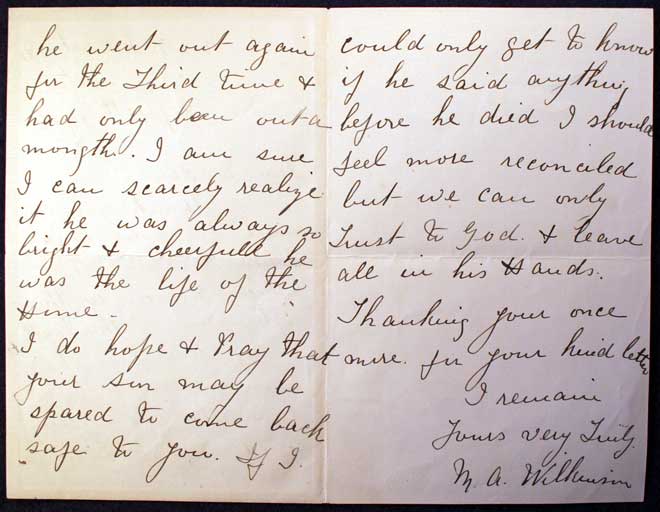 he went out again
for the Third time &
had only been out a
mongth. I am sure
I can scarcely realize
it he was always so
bright & cheerfull he
was the life of the
Home -
I do hope & Pray that
your son may be
spared to come back
safe to you. If I.
could only get to know
if he said anything
before he died I should
feel more reconciled
but we can only
Trust to God. & leave
all in his Hands.
Thanking your once
more. for your kind letter
I remain
Yours very Truly.
M. A. Wilkinson